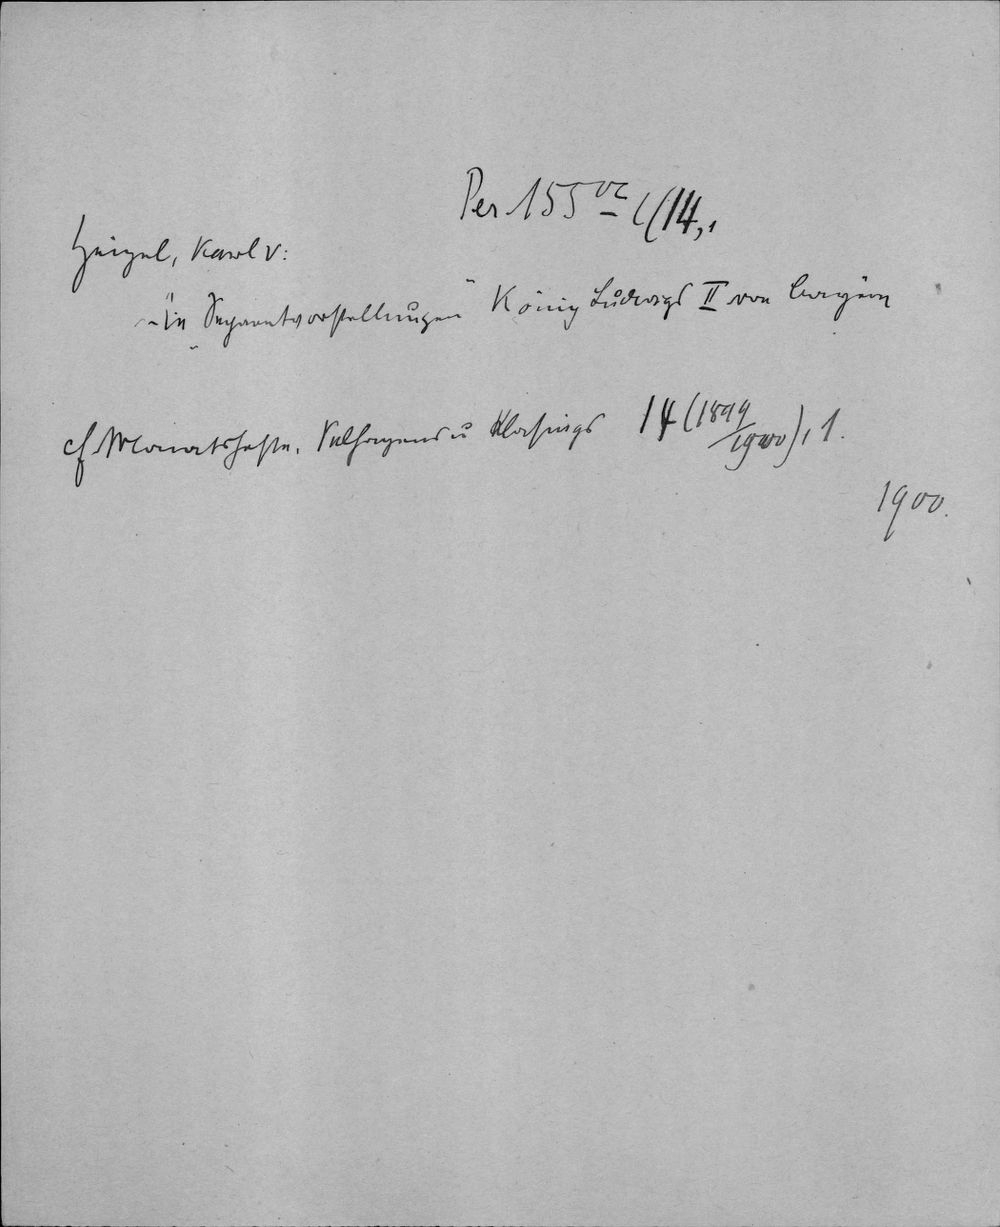 Per. 155 vc ((14,1
Heigel, Karl v:
"Die Separatvorstellungen" König Ludwigs II von Bayern
cf Monatshefte, Velhagens u Klasings 14 (1899/1900), 1.
1900.